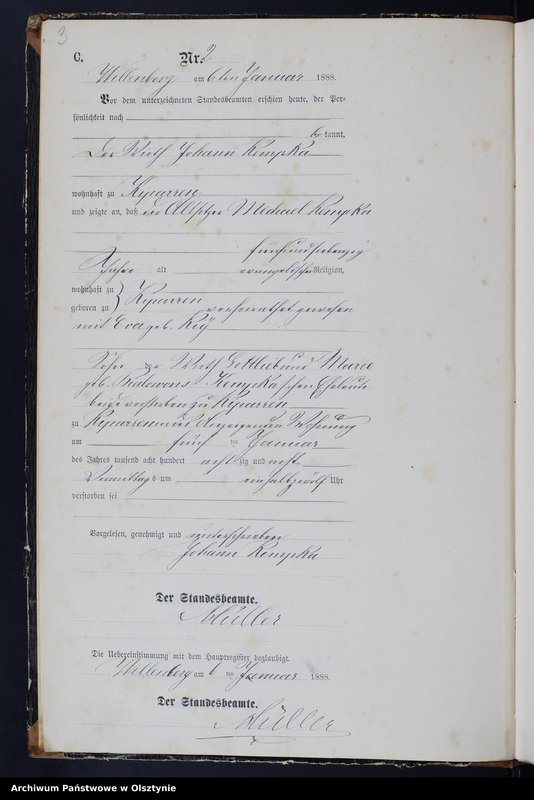 3
C.
Nr. 2
Willenberg am 6ten Januar 1888.
Vor dem unterzeichneten Standesbeamten erschien heute, der Per-
sönlichkeit nach
be kannt,
Der Wirth Johann Kempka
wohnhaft zu Kyparren
und zeigte an, daß der Altsitzer Michael Kempka
fünfundsiebenzig
Jahre alt evangelischer Religion,
wohnhaft zu
geboren zu Kyparren verheirathet gewesen
mit Eva geb.
Sohn der Wirth Gottlieb und Marie
geb. Kempka'schen Eheleute
beide verstorben zu Kyparren
zu Kyparren in der Wohnung
am fünf ten Januar
des Jahres tausend acht hundert acht zig und acht
Vormittags um einhalbzwölf Uhr
verstorben sei
Vorgelesen, genehmigt und unterschrieben
Johann Kempka
Der Standesbeamte.
Müller
Die Uebereinstimmung mit dem Hauptregister beglaubigt.
Willenberg am 6 ten Januar 1888.
Der Standesbeamte.
Müller
Archiwum Państwowe w Olsztynie